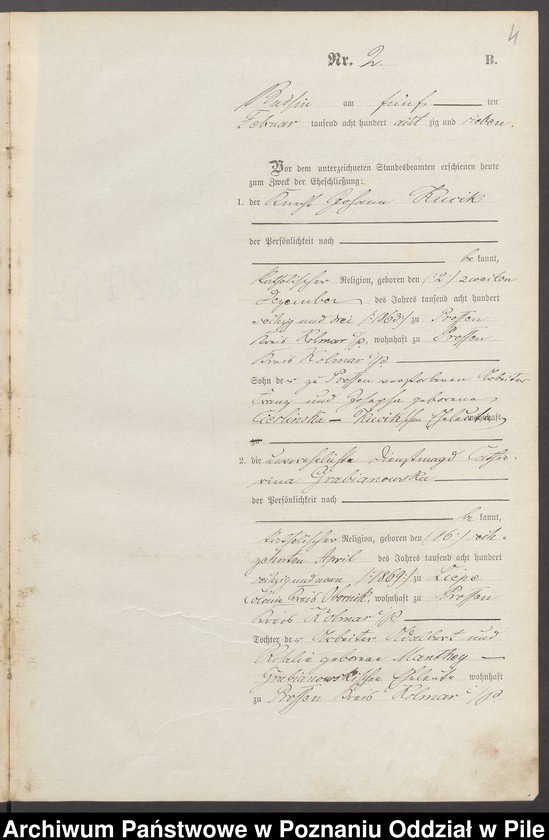 4
Nr. 2 B.
Budsin am fünf ten
Februar tausend acht hundert acht zig und sieben.
Vor dem unterzeichneten Standesbeamten erschienen heute
zum Zweck der Eheschließung:
1. der Knecht Johann Kucik
der Persönlichkeit nach
be kannt,
katholischer Religion, geboren den /:2:/ zweiten
Dezember des Jahres tausend acht hundert
sechzig und drei /:1863:/ zu Prossen
Kreis Kolmar i/p, wohnhaft zu Prossen
Kreis Kolmar i/p
Sohn der zu Prossen verstorbenen Arbeiter
Franz und Josepha geborene
Cierlinska - Kucik'schen Eheleute wohnhaft
zu
2. die unverehelichte Dienstmagd Catha-
rina Grabianowska
der Persönlichkeit nach
be kannt,
katholischer Religion, geboren den /:16:/ sech-
zehnten April des Jahres tausend acht hundert
sechzig und neun /:1869:/ zu Liepe
Colonie Kreis Obornik, wohnhaft zu Prossen
Kreis Kolmar i/p
Tochter der Arbeiter Adalbert und
Rosalie geborene Manthey -
Grabianowski'schen Eheleute wohnhaft
zu Prossen Kreis Kolmar i/p.
Archiwum Państwowe w Poznaniu Oddział w Pile